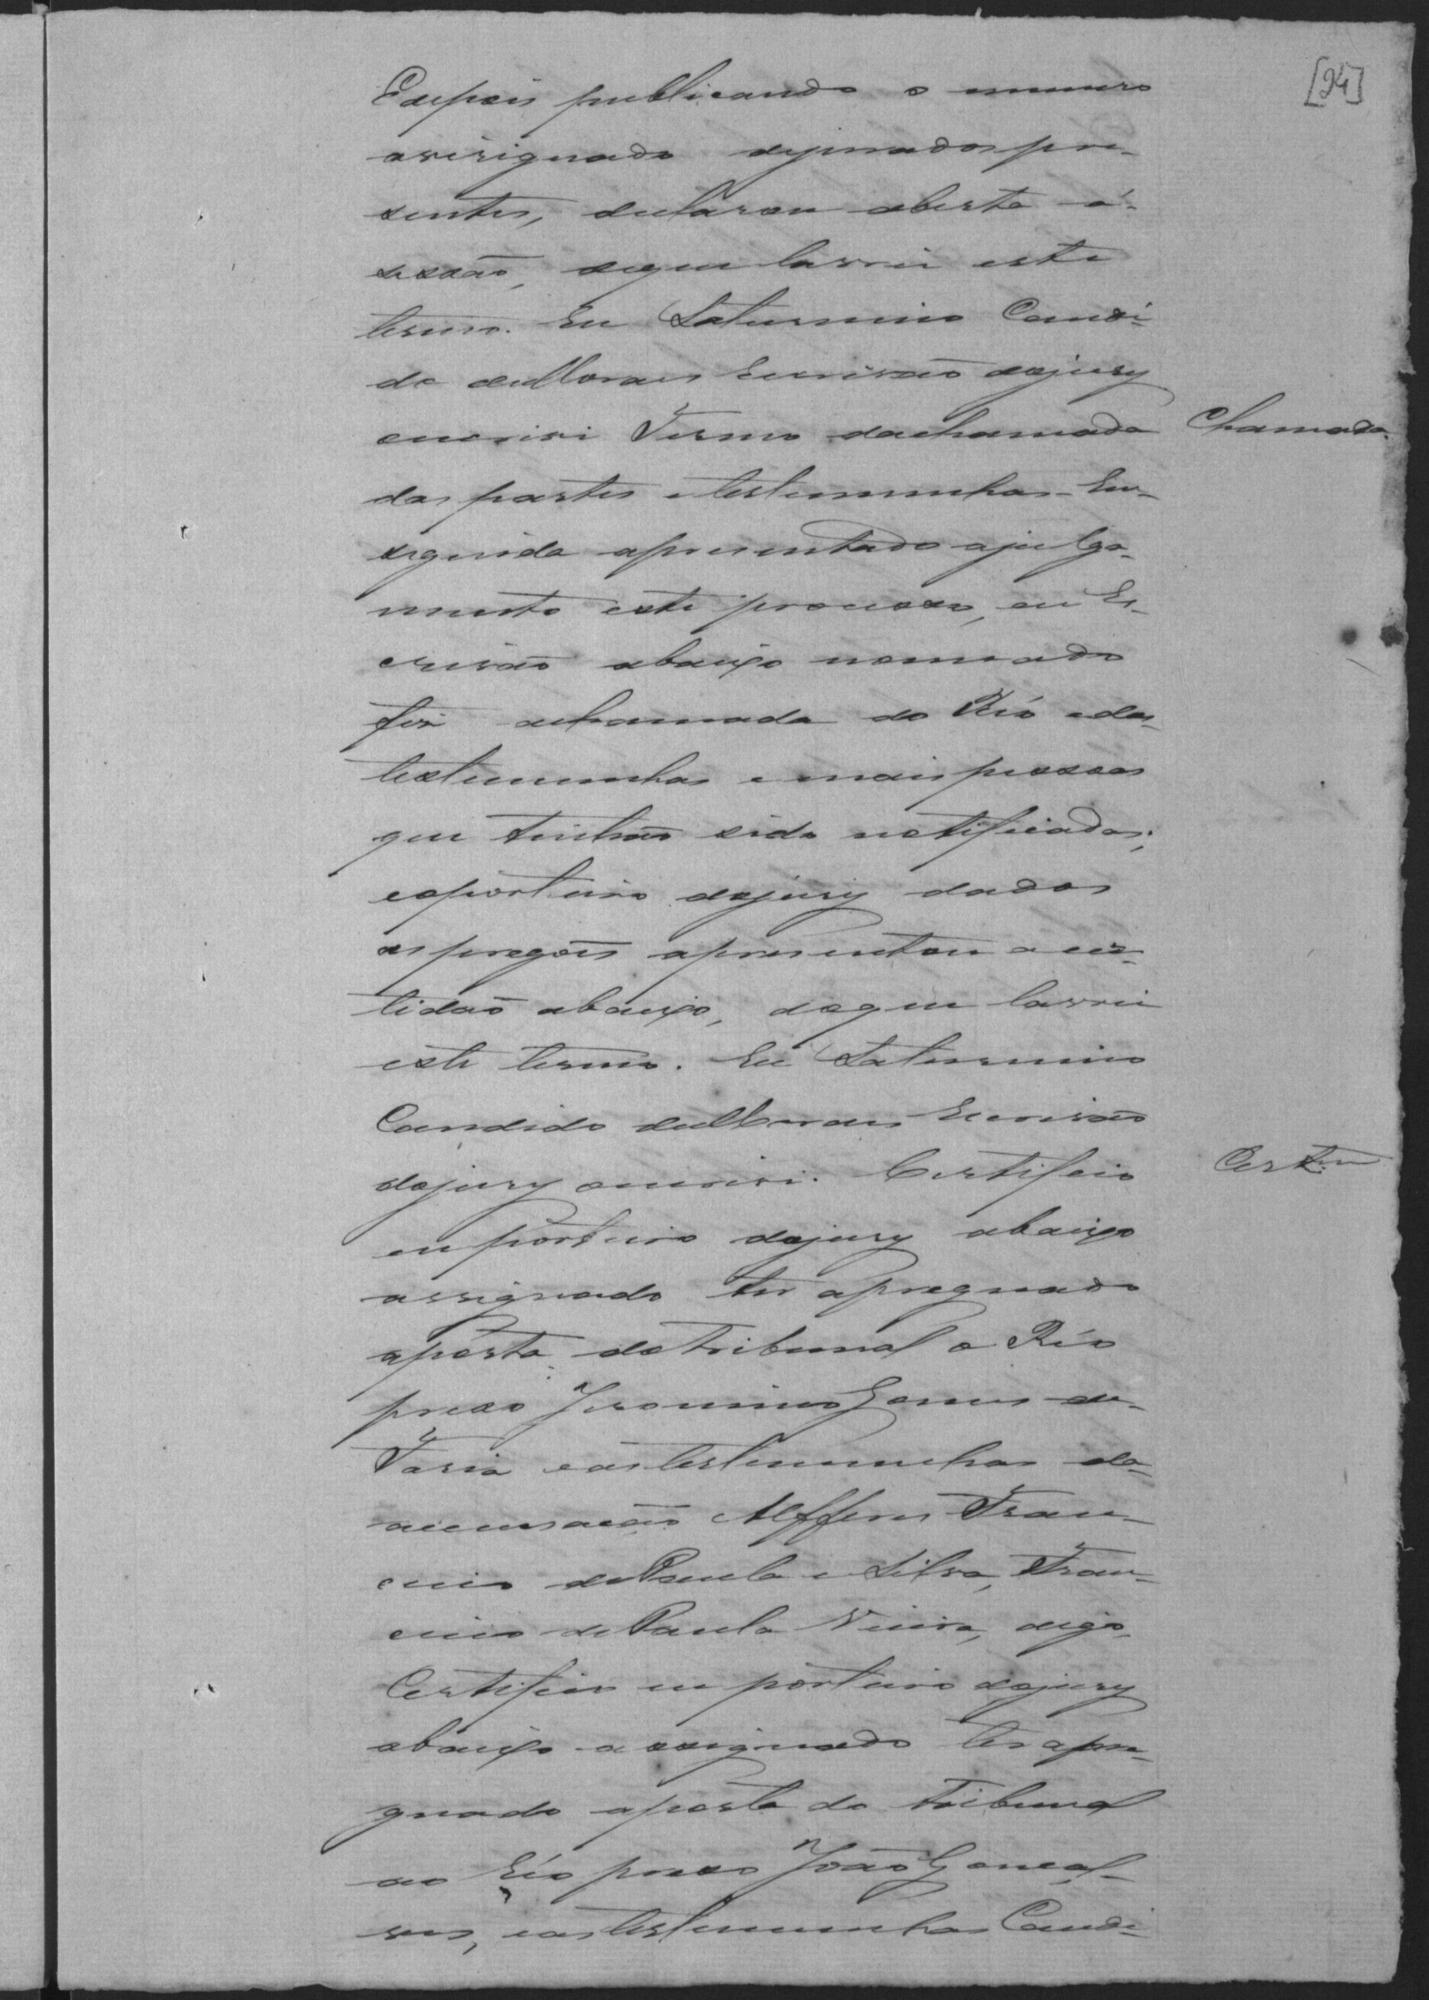 [24]
Edepois publicando o numero
assignado dejurados pre-
sentes, declarou aberta á-
sessão, doque lavrei este
termo. Eu Saturnino Candi-
do deMoraes Escrivão dojury
oescrivi Termo dachamada
Chamada
das partes etestemunhas - Em-
seguida apresentado ajulga-
mento este processo, eu Es-
crivão abaixo nomeado
fiz achamada do Réo edas
testemunhas e mais pessoas
que tinhão sido notificadas;
eoporteiro dojury dados
os pregões apresentou a cer-
tidão abaixo, doque lavrei
este termo. Eu Saturnino
Candido deMoraes Escrivão
dojury oescrivi. Certifico
Certam
eu porteiro dojury abaixo
assignado ter apregoado
aporta do tribunal o Réo
preso Jeronimo Gomes de-
Faria easTestemunhas da-
accusação Alferes Fran-
cisco dePaula e Silva, Fran-
cisco dePaula Vieira, digo,
Certifico eu porteiro dojury
abaixo assignado ter apre-
guado aporta do tribunal
ao Réo preso João Gonçal-
ves, eastestemunhas Candi-